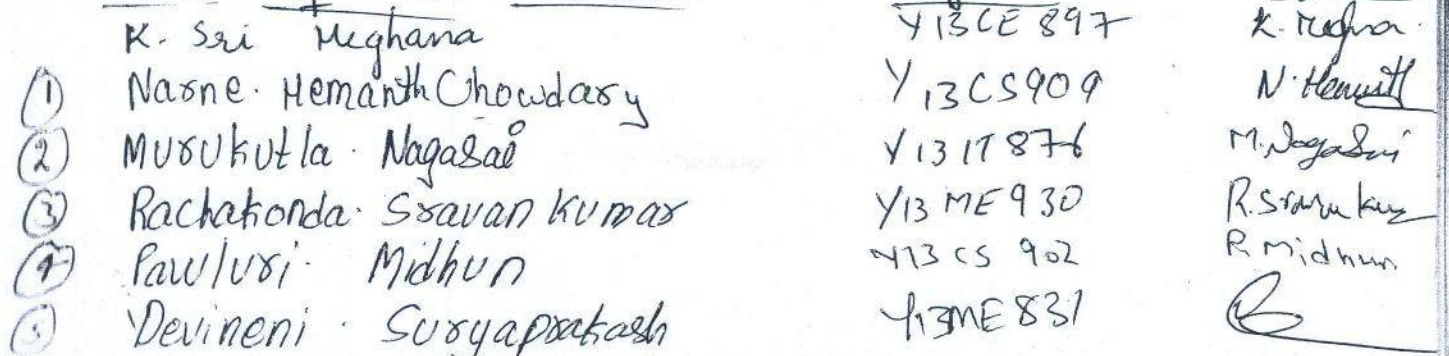 K. Sri Meghana Y13CE897 K. Meghna.
1 Narne. Hemanth Chowdary Y13CS909 N. Hemanth
2 Murukutla. Nagasai Y13IT876 M. NagaSai
3 Rachakonda. Sravan Kumar Y13ME930 R. Sravan Kumar
4 Pavuluri. Midhun Y13CS902 P. Midhun
5 Devineni. Suryaprakash Y13ME831